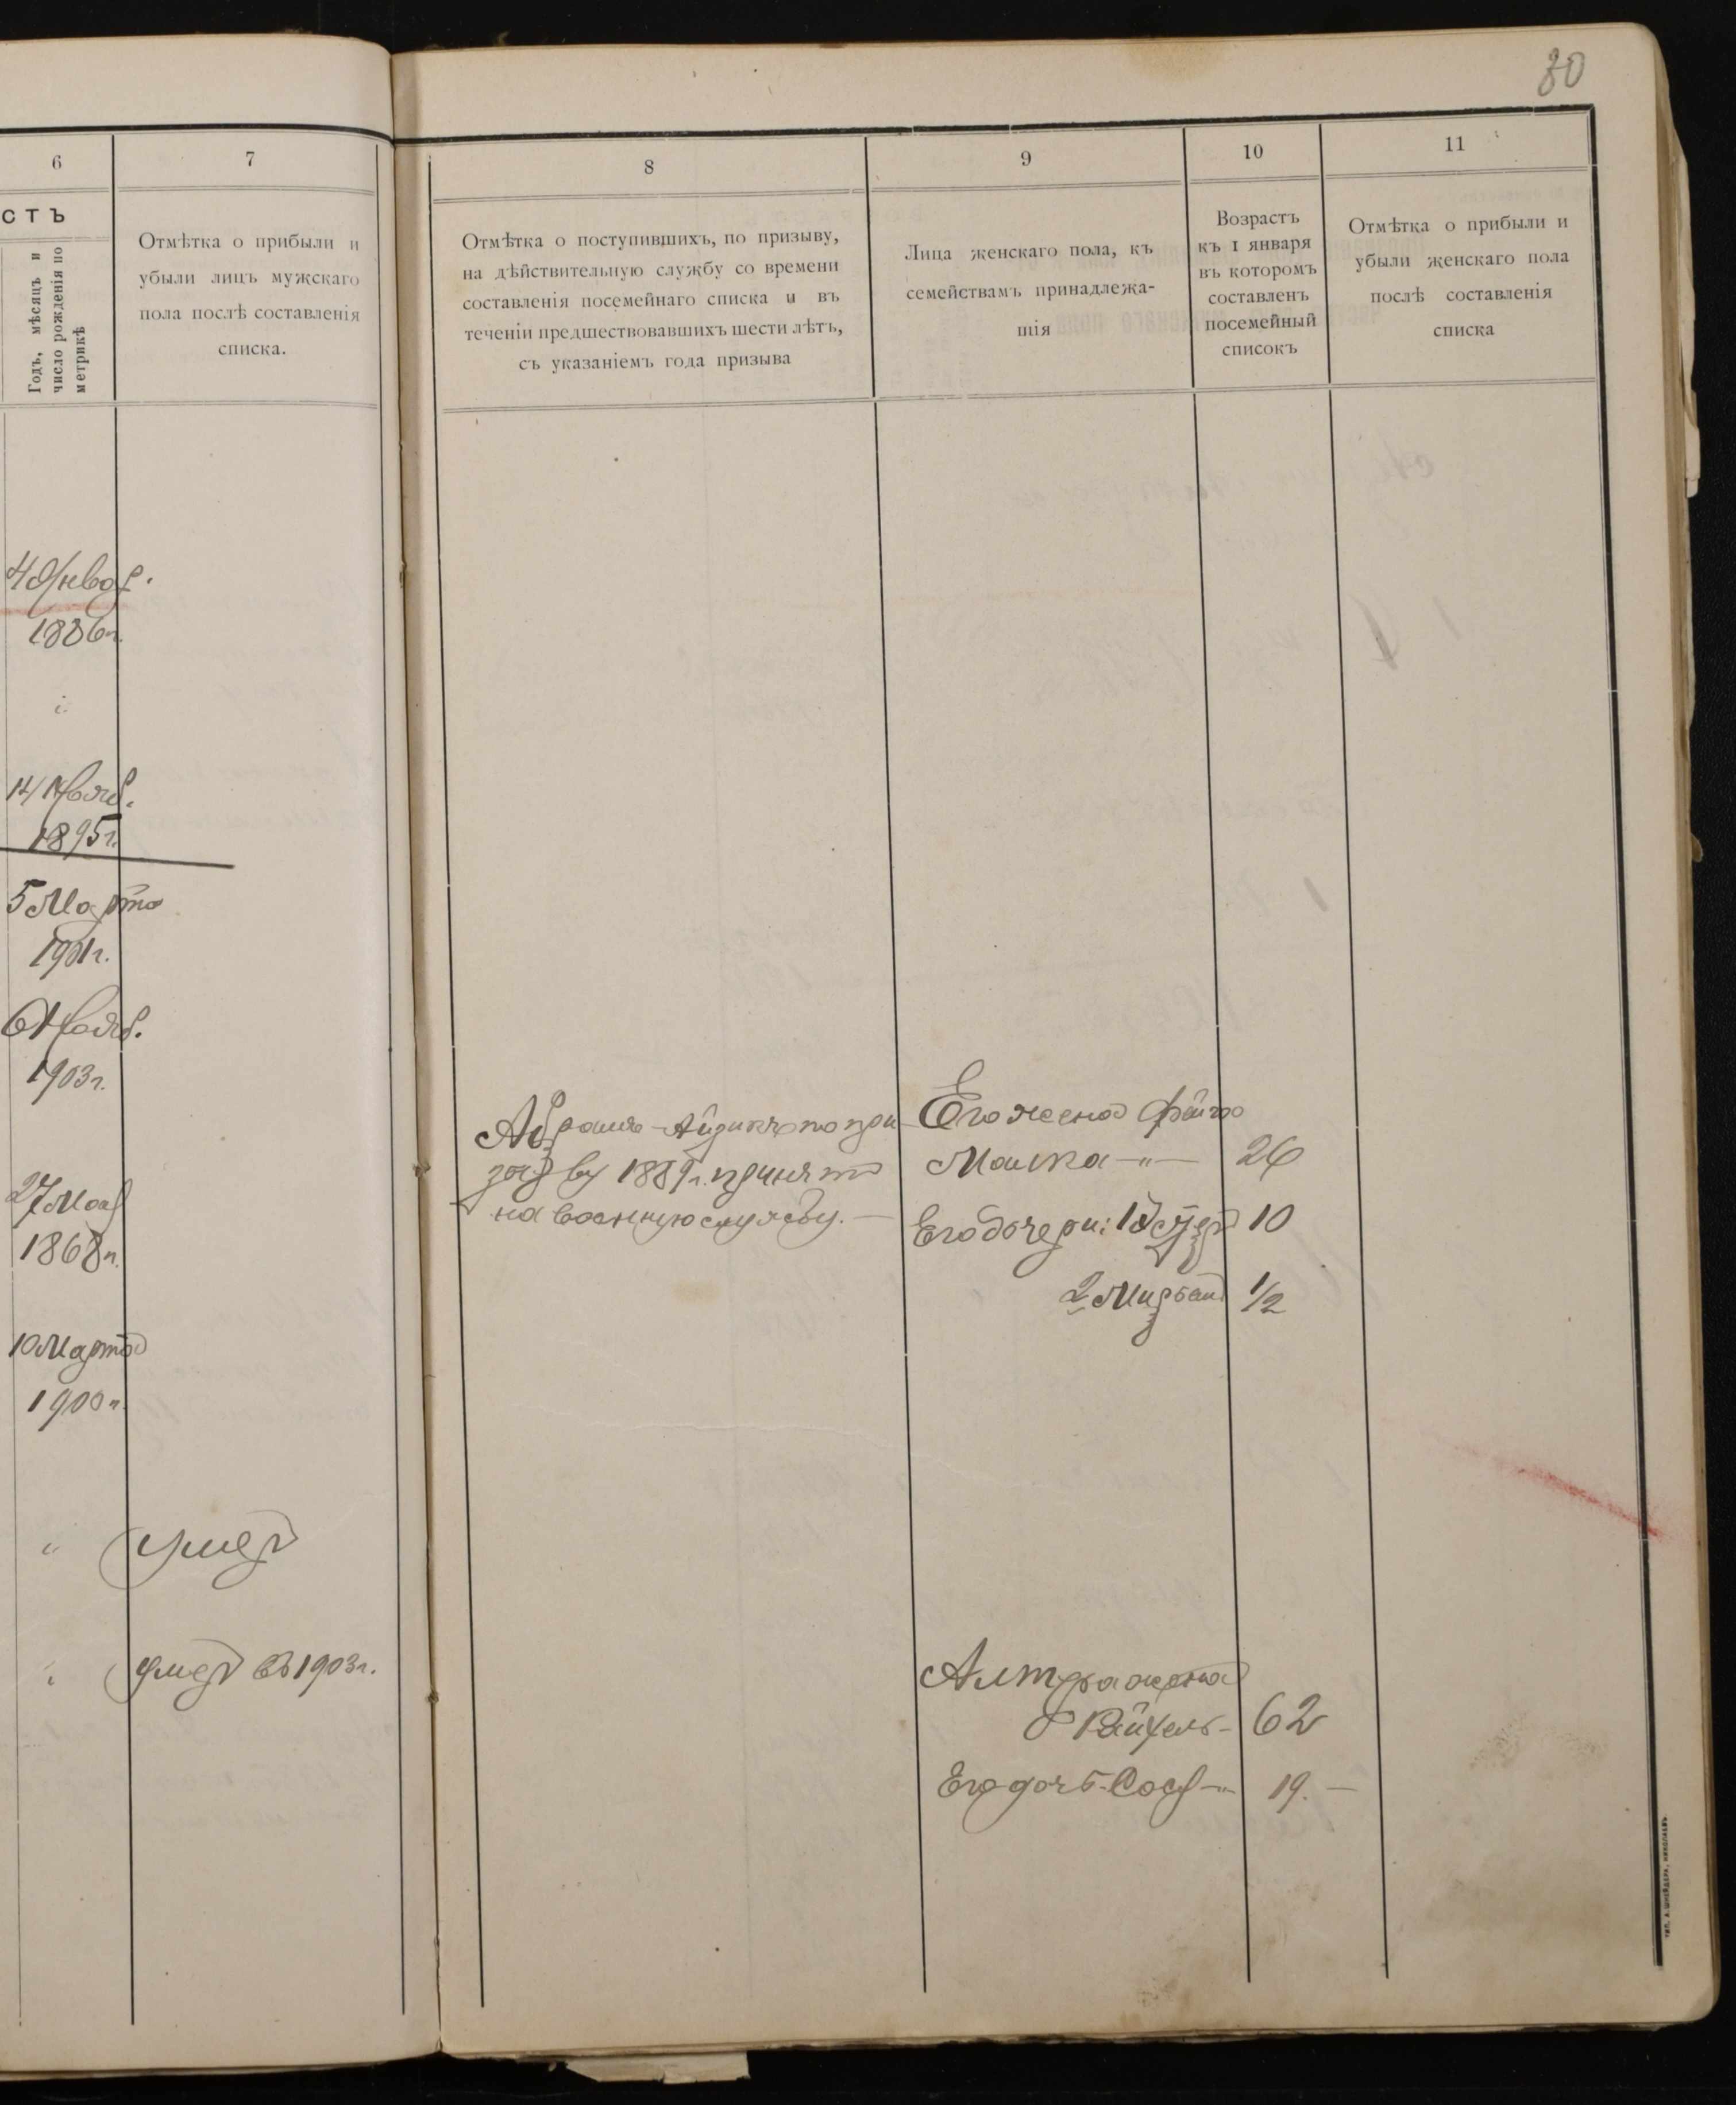 80
6
7
8
9
10
11
СТЪ
Годъ, мѣсяцъ и
число рожденія по
метрикѣ
Отмѣтка о прибыли и
убыли лицъ мужскаго
пола послѣ составленія
списка.
Отмѣтка о поступившихъ, по призыву,
на дѣйствительную службу со времени
составленія посемейнаго списка и въ
теченіи предшествовавшихъ шести лѣтъ,
съ указаніемъ года призыва
Лица женскаго пола, къ
семействамъ принадлежа-
щія
Возрастъ
къ 1 января
въ которомъ
составленъ
посемейный
списокъ
Отмѣтка о прибыли и
убыли женскаго пола
послѣ составленія
списка
4 Январ.
1886г.
14 Нояб.
1895г.
5 Марта
1901г.
6 Нояб.
1903г.
27 Мая
1868г.
10 Марта
1900г.
умеръ
умеръ въ 1903г.
Абрамъ-Айзикъ по при
въ 1889г. принятъ
на военную службу. —
Его жена Фейга
Малка —"— 26
Его дочери: 1 10
2 1/2
жена
Рейхель - 62
Его дочь - 19. —
Тип. А. Шнейдера, Николаевъ.